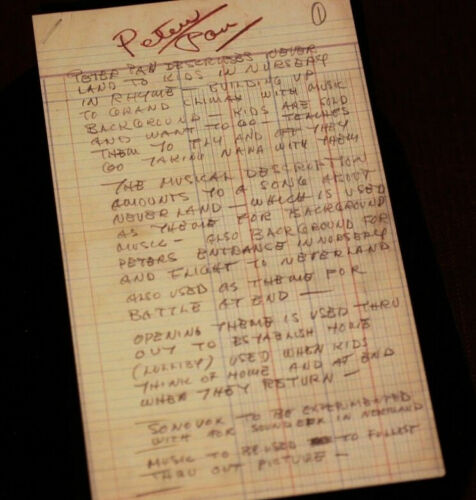 1
Peter
Pan
PETER PAN DESCRIBES NEVER
LAND TO KIDS IN NURSERY
IN RHYME — BUILDING UP
TO GRAND CLIMAX WITH MUSIC
BACKGROUND — KIDS ARE SOLD
AND WANT TO GO — TEACHES
THEM TO FLY AND OFF THEY
GO TAKING NANA WITH THEM
THE MUSICAL DESCRIPTION
AMOUNTS TO A SONG ABOUT
NEVERLAND — WHICH IS USED
AS THEME FOR BACKGROUND
MUSIC — ALSO BACKGROUND FOR
PETERS ENTRANCE IN NURSERY
AND FLIGHT TO NEVERLAND
ALSO USED AS THEME FOR
BATTLE AT END —
OPENING THEME IS USED THRU
OUT TO ESTABLISH HOME
(LULLIBY) USED WHEN KIDS
THINK OF HOME AND AT END
WHEN THEY RETURN —
SONOVOX TO BE EXPERIMENTED
WITH FOR SOUND IN NEVERLAND
MUSIC TO BE USED TO FULLEST
THRU OUT PICTURE —